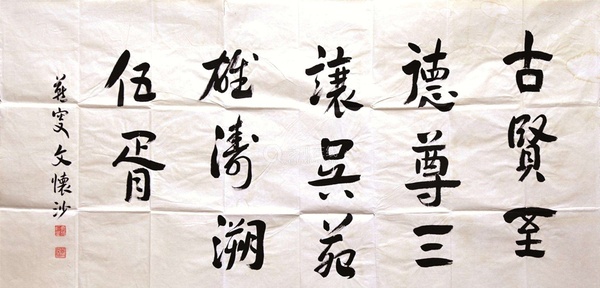 古賢至
德尊三
讓吳苑
雄濤溯
伍胥
燕叟文懷沙